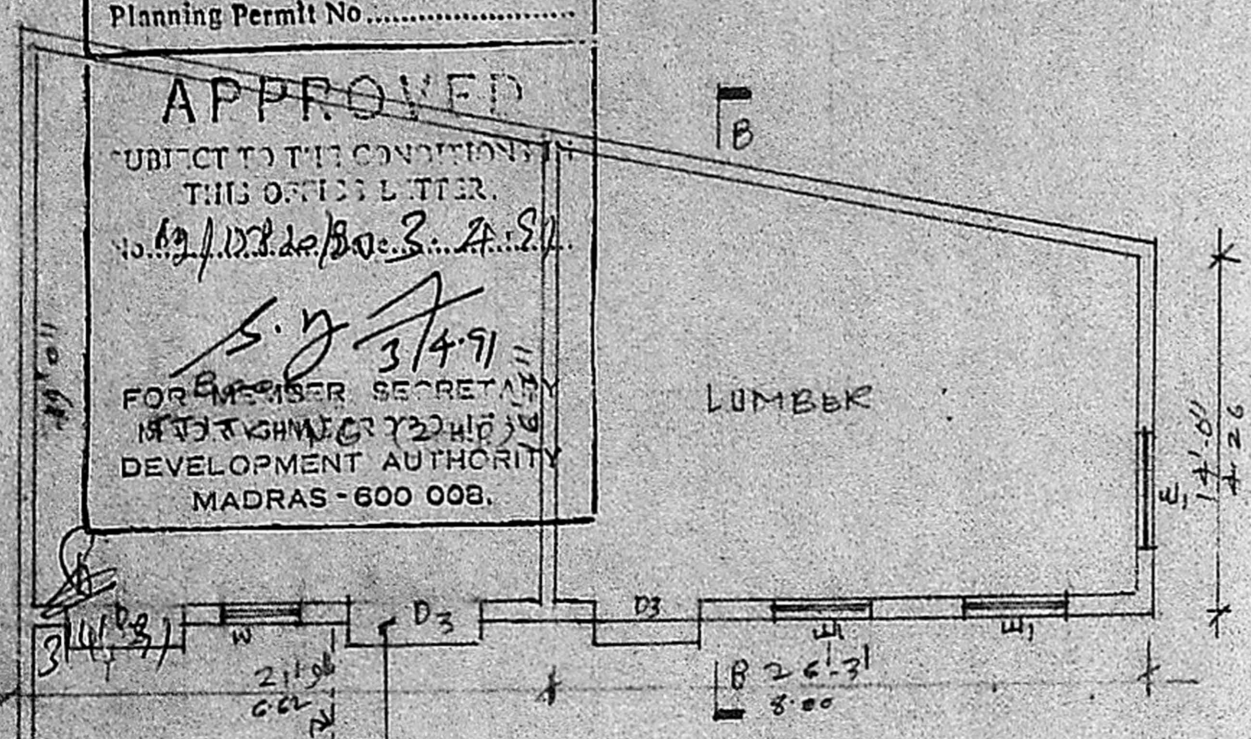 Planning Permit No......................
APPROVED
SUBJECT TO THE CONDITIONS IN
THIS OFFICE LETTER.
No.
S.Y
3/4.91
FOR MEMBER SECRETARY
DEVELOPMENT AUTHORITY
MADRAS - 600 008.
B
LUMBER
14'-0"
4.26
D3
D3
W
W1
W1
21'9"
6.62
B
26'-3"
8.00